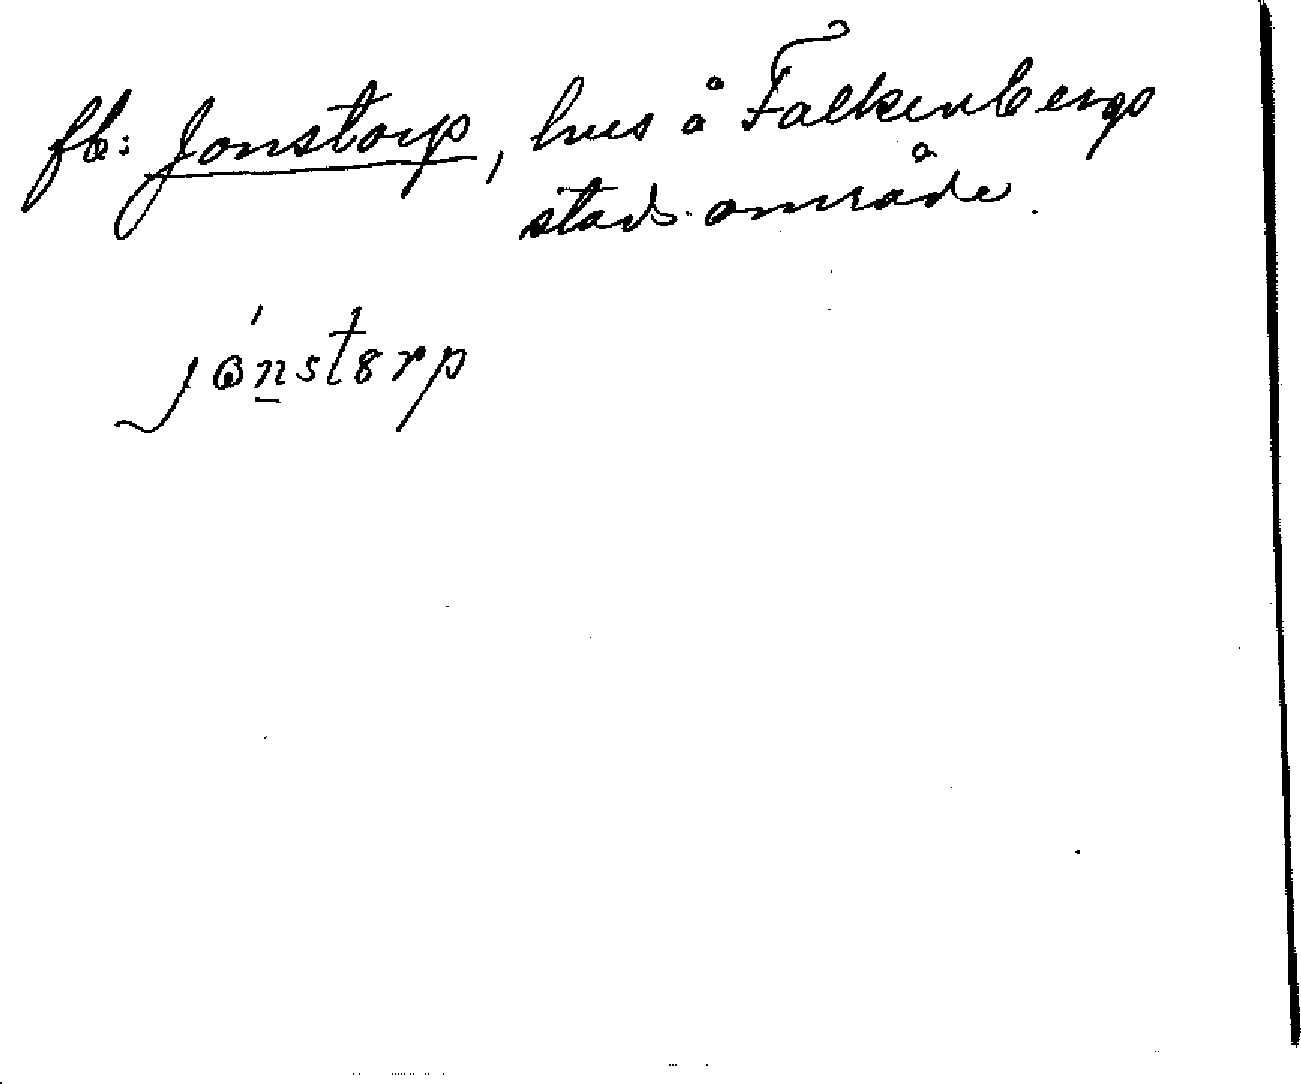 fb: Jonstorp, hus å Falkenbergs
stads område.
jónstərp